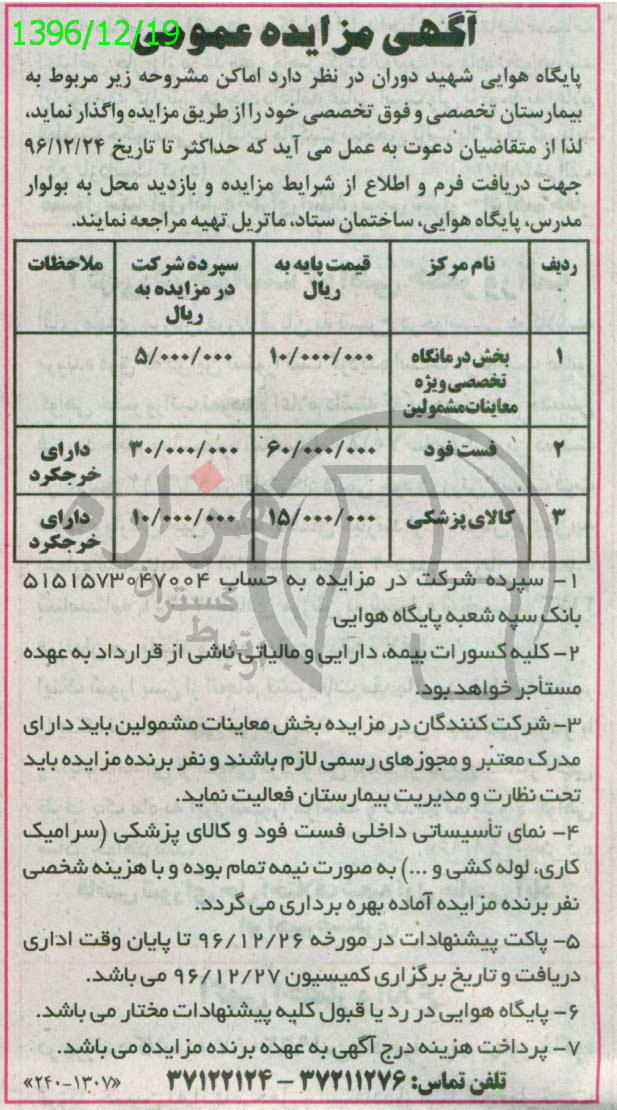 1396/12/19
آگهی مزایده عمومی
پایگاه هوایی شهید دوران در نظر دارد اماکن مشروحه زیر مربوط به
بیمارستان تخصصی و فوق تخصصی خود را از طریق مزایده واگذار نماید،
لذا از متقاضیان دعوت به عمل می آید که حداکثر تا تاریخ ۹۶/۱۲/۲۴
جهت دریافت فرم و اطلاع از شرایط مزایده و بازدید محل به بولوار
مدرس، پایگاه هوایی، ساختمان ستاد، ماتریل تهیه مراجعه نمایند.
ردیف نام مرکز قیمت پایه به ریال سپرده شرکت در مزایده به ریال ملاحظات
۱ بخش درمانگاه تخصصی ویژه معاینات مشمولین ۱۰/۰۰۰/۰۰۰ ۵/۰۰۰/۰۰۰
۲ فست فود ۶۰/۰۰۰/۰۰۰ ۳۰/۰۰۰/۰۰۰ دارای خرجکرد
۳ کالای پزشکی ۱۵/۰۰۰/۰۰۰ ۱۰/۰۰۰/۰۰۰ دارای خرجکرد
۱- سپرده شرکت در مزایده به حساب ۵۱۵۱۵۷۳۰۴۷۰۰۴
بانک سپه شعبه پایگاه هوایی
۲- کلیه کسورات بیمه، دارایی و مالیاتی ناشی از قرارداد به عهده
مستأجر خواهد بود.
۳- شرکت کنندگان در مزایده بخش معاینات مشمولین باید دارای
مدرک معتبر و مجوزهای رسمی لازم باشند و نفر برنده مزایده باید
تحت نظارت و مدیریت بیمارستان فعالیت نماید.
۴- نمای تأسیساتی داخلی فست فود و کالای پزشکی (سرامیک
کاری، لوله کشی و ...) به صورت نیمه تمام بوده و با هزینه شخصی
نفر برنده مزایده آماده بهره برداری می گردد.
۵- پاکت پیشنهادات در مورخه ۹۶/۱۲/۲۶ تا پایان وقت اداری
دریافت و تاریخ برگزاری کمیسیون ۹۶/۱۲/۲۷ می باشد.
۶- پایگاه هوایی در رد یا قبول کلیه پیشنهادات مختار می باشد.
۷- پرداخت هزینه درج آگهی به عهده برنده مزایده می باشد.
تلفن تماس: ۳۷۲۱۱۲۷۶ – ۳۷۱۲۲۱۲۴ «۲۴۰-۱۳۰۷»
هزاره
گستران
ارتباط